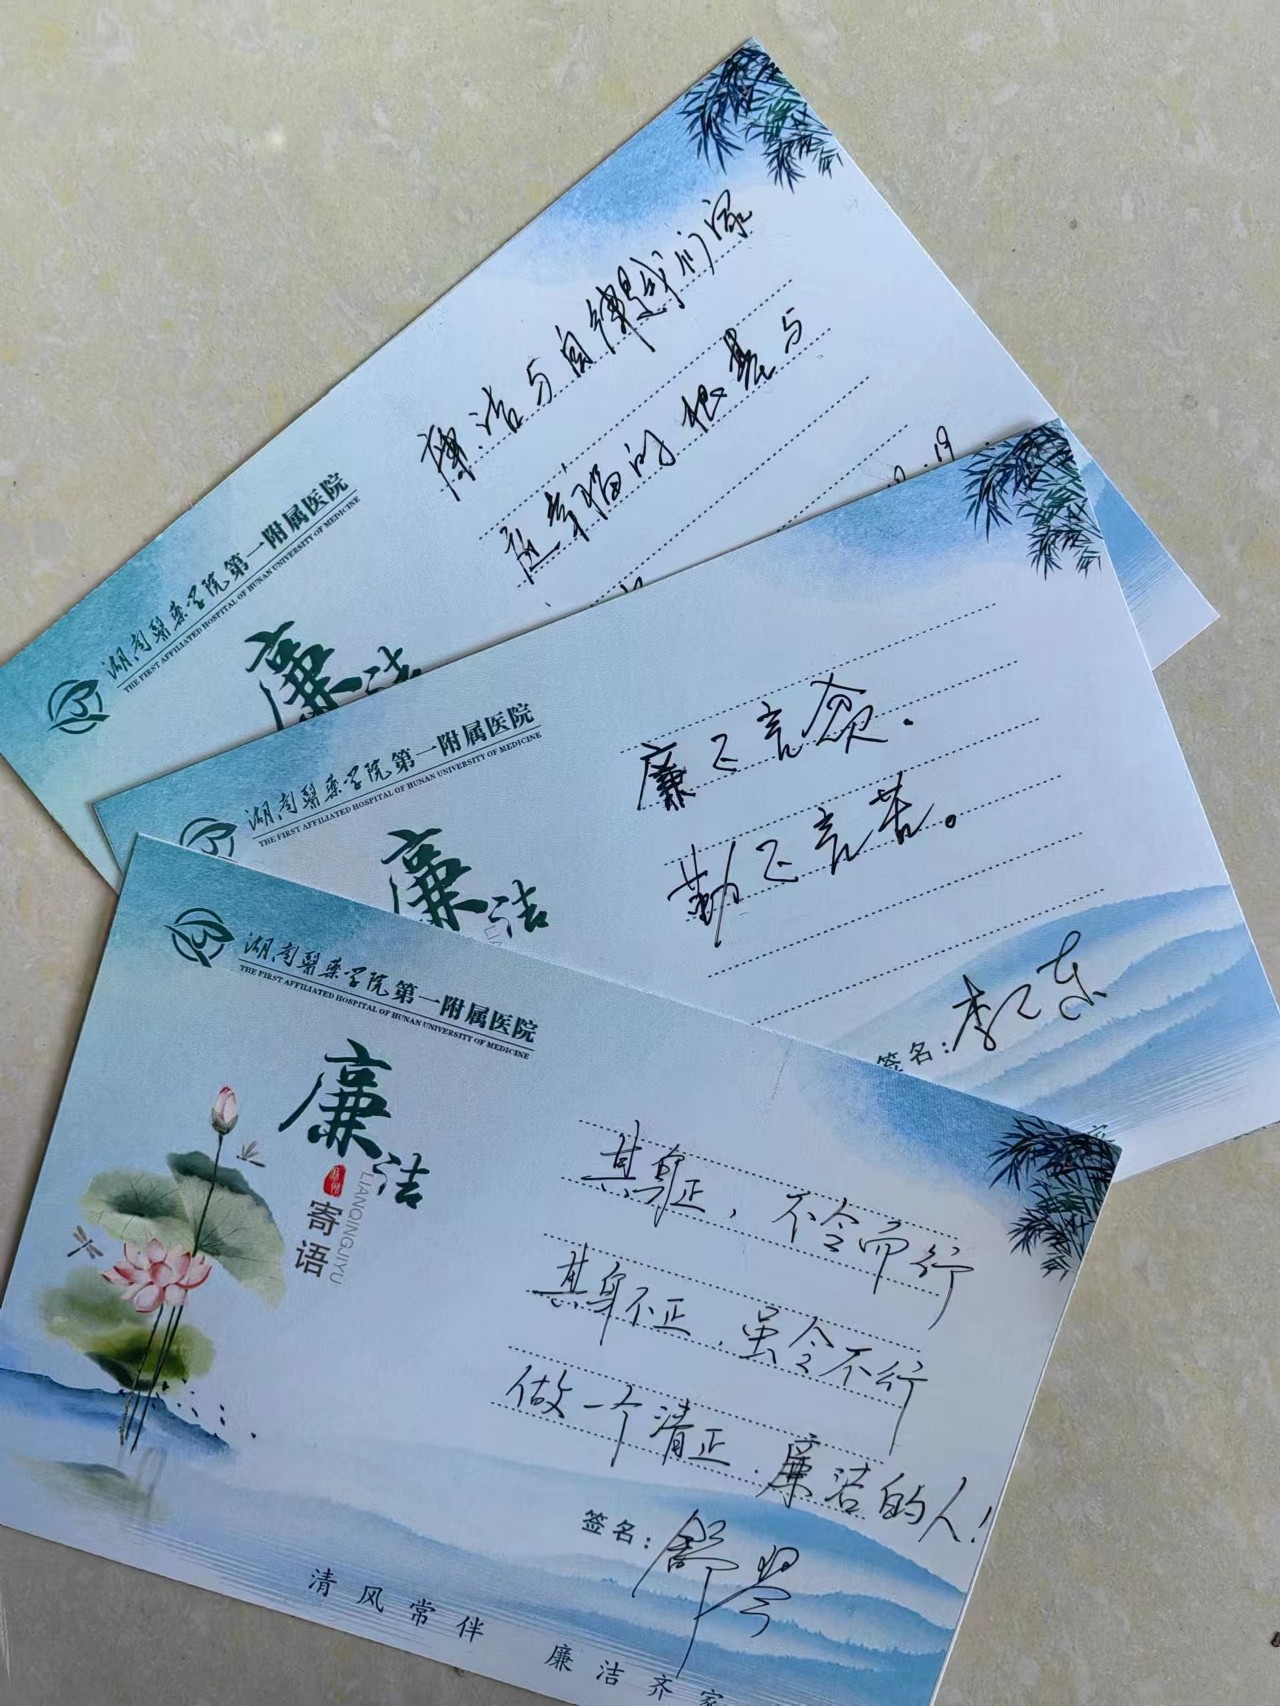 湖南醫藥学院第一附属医院
THE FIRST AFFILIATED HOSPITAL OF HUNAN UNIVERSITY OF MEDICINE
廉洁
廉洁与自律是我们家
庭幸福的根基与
湖南醫藥学院第一附属医院
THE FIRST AFFILIATED HOSPITAL OF HUNAN UNIVERSITY OF MEDICINE
廉洁
廉不言贫.
勤不言苦。
签名:
湖南醫藥学院第一附属医院
THE FIRST AFFILIATED HOSPITAL OF HUNAN UNIVERSITY OF MEDICINE
廉洁
寄语
LIANQINGJIYU
其身正，不令而行
其身不正，虽令不行
做一个清正、廉洁的人!
签名:
清风常伴 廉洁齐家